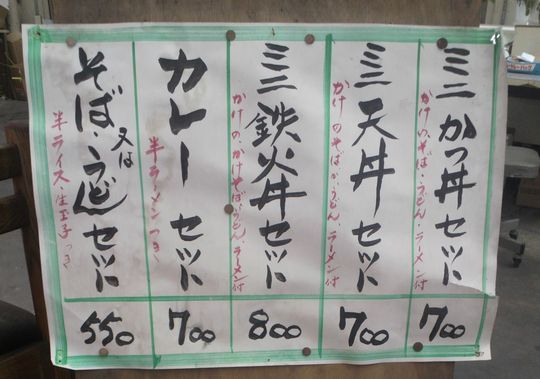 ミニかつ丼セット
かけの、そば・うどん・ラーメン付
700
ミニ天丼セット
かけのそばか、うどん、ラーメン付
700
ミニ鉄火丼セット
かけの、かけそば、うどん、ラーメン付
800
カレーセット
半ラーメンつき
700
そば、又はうどんセット
半ライス・生玉子つき
550